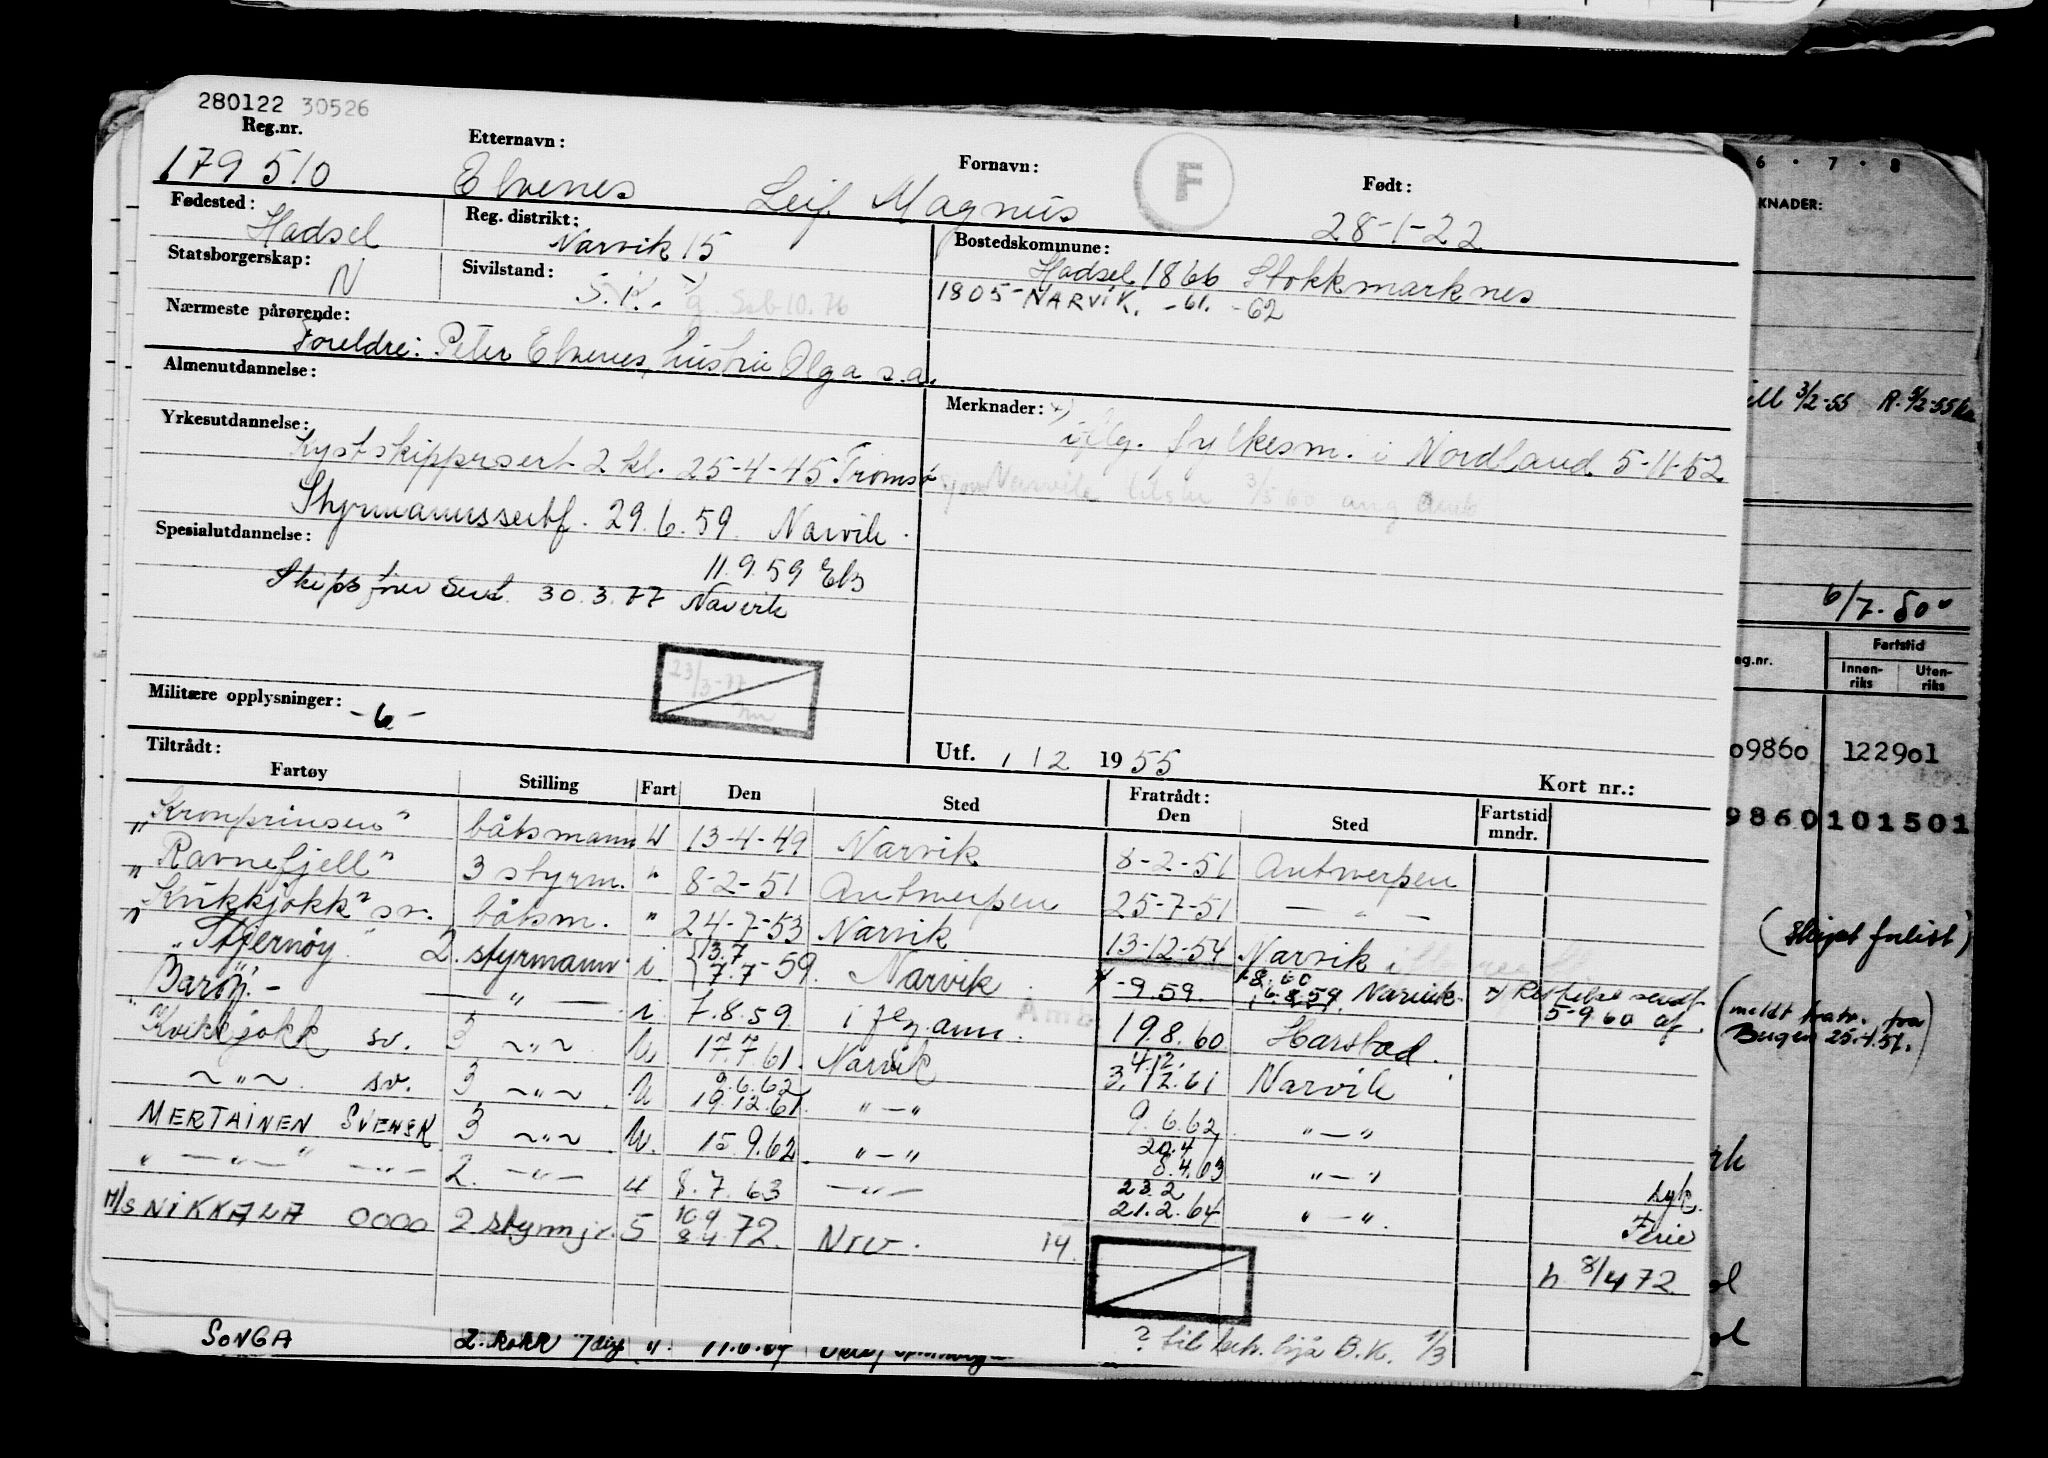 280122 30526
Reg.nr. Etternavn: Fornavn: F Født:
179510 Elvenes Leif Magnus 28-1-22
Fødested: Hadsel Reg. distrikt: Narvik 15 Bostedskommune:
Hadsel 1866 Stokkmarknes
Statsborgerskap: N Sivilstand: 1805-NARVIK. -61. -62
Nærmeste pårørende:
Foreldre: Peter Elvenes, hustru Olga s.a.
Almenutdannelse: Merknader:
iflg. fylkesm. i Nordland 5-11-52
Yrkesutdannelse:
Kystskippersert 2 kl. 25-4-45 Tromsø
Styrmannssertf. 29.6.59. Narvik.
Spesialutdannelse:
11.9.59
30.3.77 Narvik
23/3-77
Militære opplysninger: -6-
Utf. 1 12 1955 Kort nr.:
Tiltrådt: Fratrådt:
Fartøy Stilling Fart Den Sted Den Sted Fartstid mndr.
"Kronprinsen" båtsmann u 13-4-49 Narvik 8-2-51 Antwerpen
"Ravnefjell" 3 styrm. " 8-2-51 Antwerpen 25-7-51 — " —
"Kvikkjokk" sv. båtsm. " 24-7-53 Narvik 13-12-54 Narvik
"Stjernøy" 2. styrmann i 13.7 7.7-59. Narvik -9.59. 6.8.59. Narvik
Barøy. — " — i 7.8.59 19.8.60 Harstad. 5-9.60
Kvikkjokk sv. 3 ~"~ U 17.7.61 Narvik 4.12. 3.12.61 Narvik
~"~ sv. 3 ~"~ U 9.6.62 19.12.61 "—" 9.6.62 "—"
MERTAINEN SVENSK 3 ~"~ U. 15.9.62 "—" 20.4 8.4.63 "—" syk.
"—"—" —"— 2. —"— u 8.7.63 —"— 23.2 21.2.64 "—". Ferie
M/S NIKKALA 0000 2 styrm jr. 5 10.9 8.4.72. Nrv. 14. h 8/4 72
SONGA
? til beh. hjå B.K. 1/3
6 · 7 · 8
KNADER:
3/2-55 R. 5/2-55
6/7-50
eg.nr. Fartstid
Innen-riks Uten-riks
09860 122901
9860101501
(Skipet forlist)
(meldt fratr. fra
Bergen 25.4.51.)